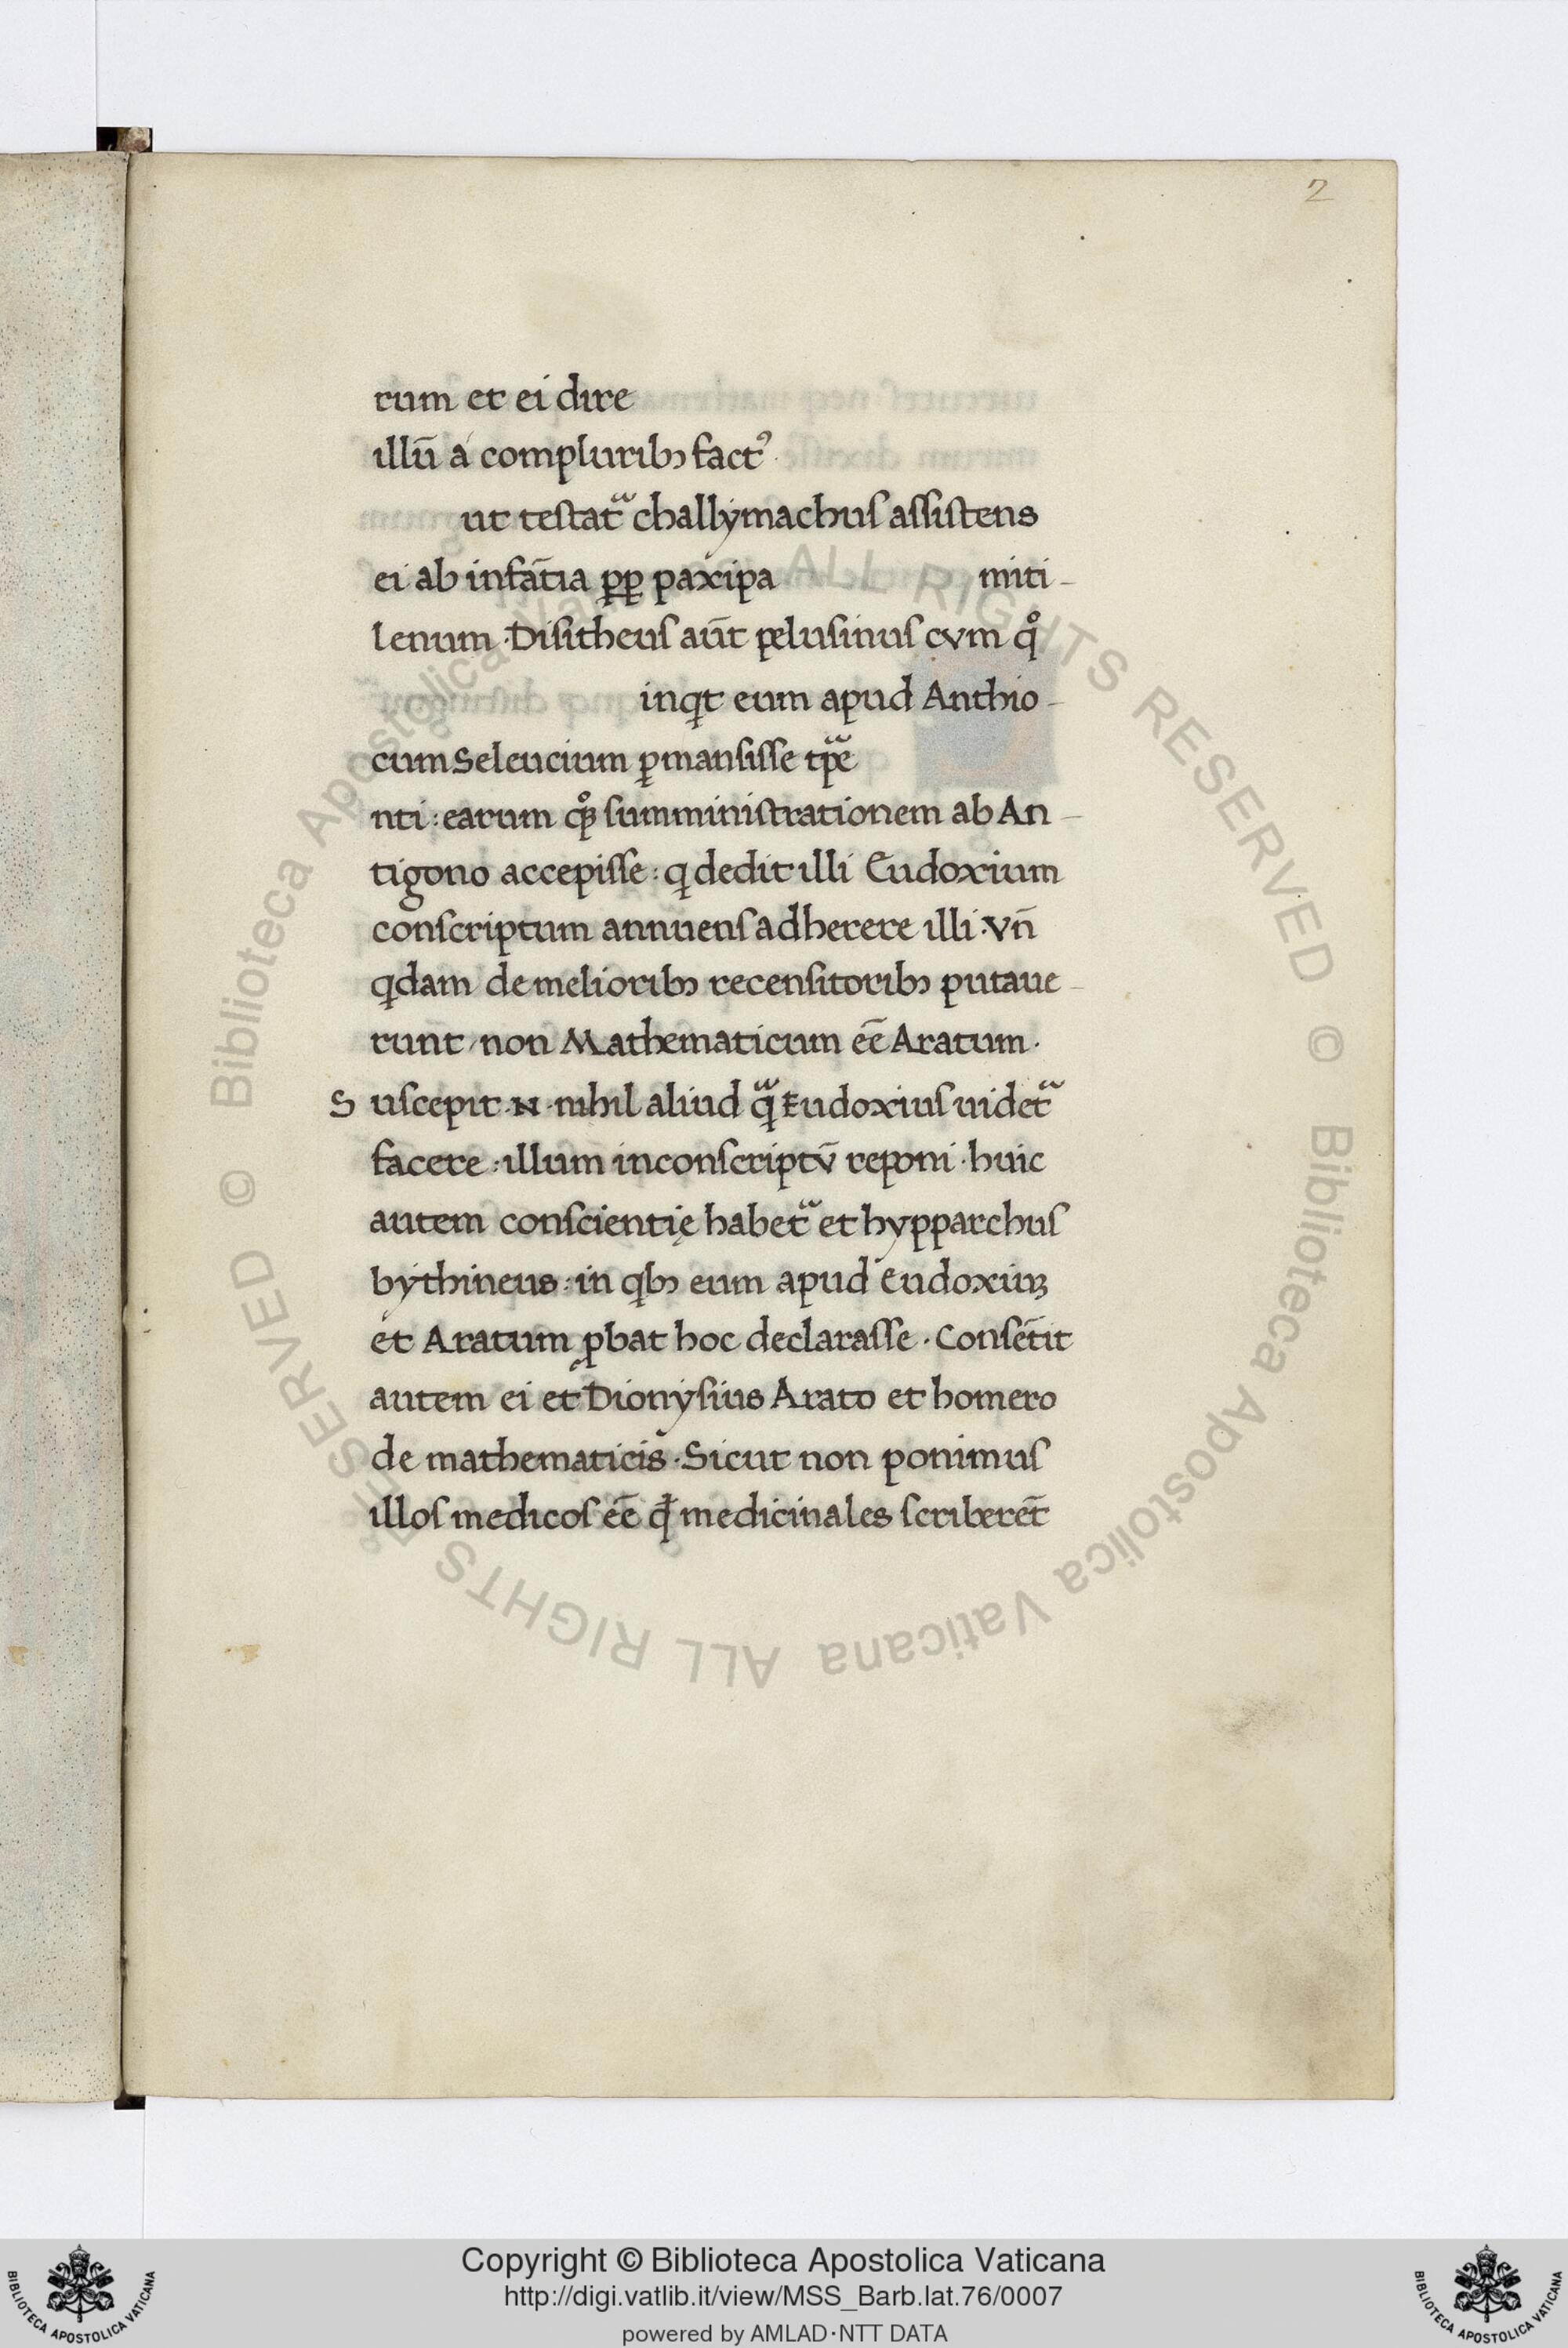 2
rum et ei dire
illū á compluribꝫ factꝰ
ut testatᷓ challymachus assistens
ei ab infātia ꝑꝑ paxipa miti-
lenum · Disitheus aūt pelusinus cvm qͦ
inqt eum apud Anthio-
cum Seleucium ꝑmansisse tp̄e
nti : earum qͦꝫ sumministrationem ab An-
tigono accepisse : q dedit illi Eudoxium
conscriptum annuens adherere illi · Vn̄
qdam de melioribꝫ recensitoribꝫ putaue-
runt / non Mathematicum eē Aratum ·
Suscepit · N · nihil aliud qᷓ Eudoxius uidetᷓ
facere : illum inconscriptv̄ reponi · huic
autem conscientię habetᷓ et hypparchus
bythineus : in qbꝫ eum apud Eudoxiuꝫ
et Aratum ꝓbat hoc declarasse · Consētit
autem ei et Dionysius Arato et homero
de mathematicis · Sicut non ponimus
illos medicos eē qđ medicinales scriberēt
© Biblioteca Apostolica Vaticana ALL RIGHTS RESERVED © Biblioteca Apostolica Vaticana ALL RIGHTS RESERVED
Copyright © Biblioteca Apostolica Vaticana
http://digi.vatlib.it/view/MSS_Barb.lat.76/0007
powered by AMLAD·NTT DATA
BIBLIOTECA APOSTOLICA VATICANA
BIBLIOTECA APOSTOLICA VATICANA